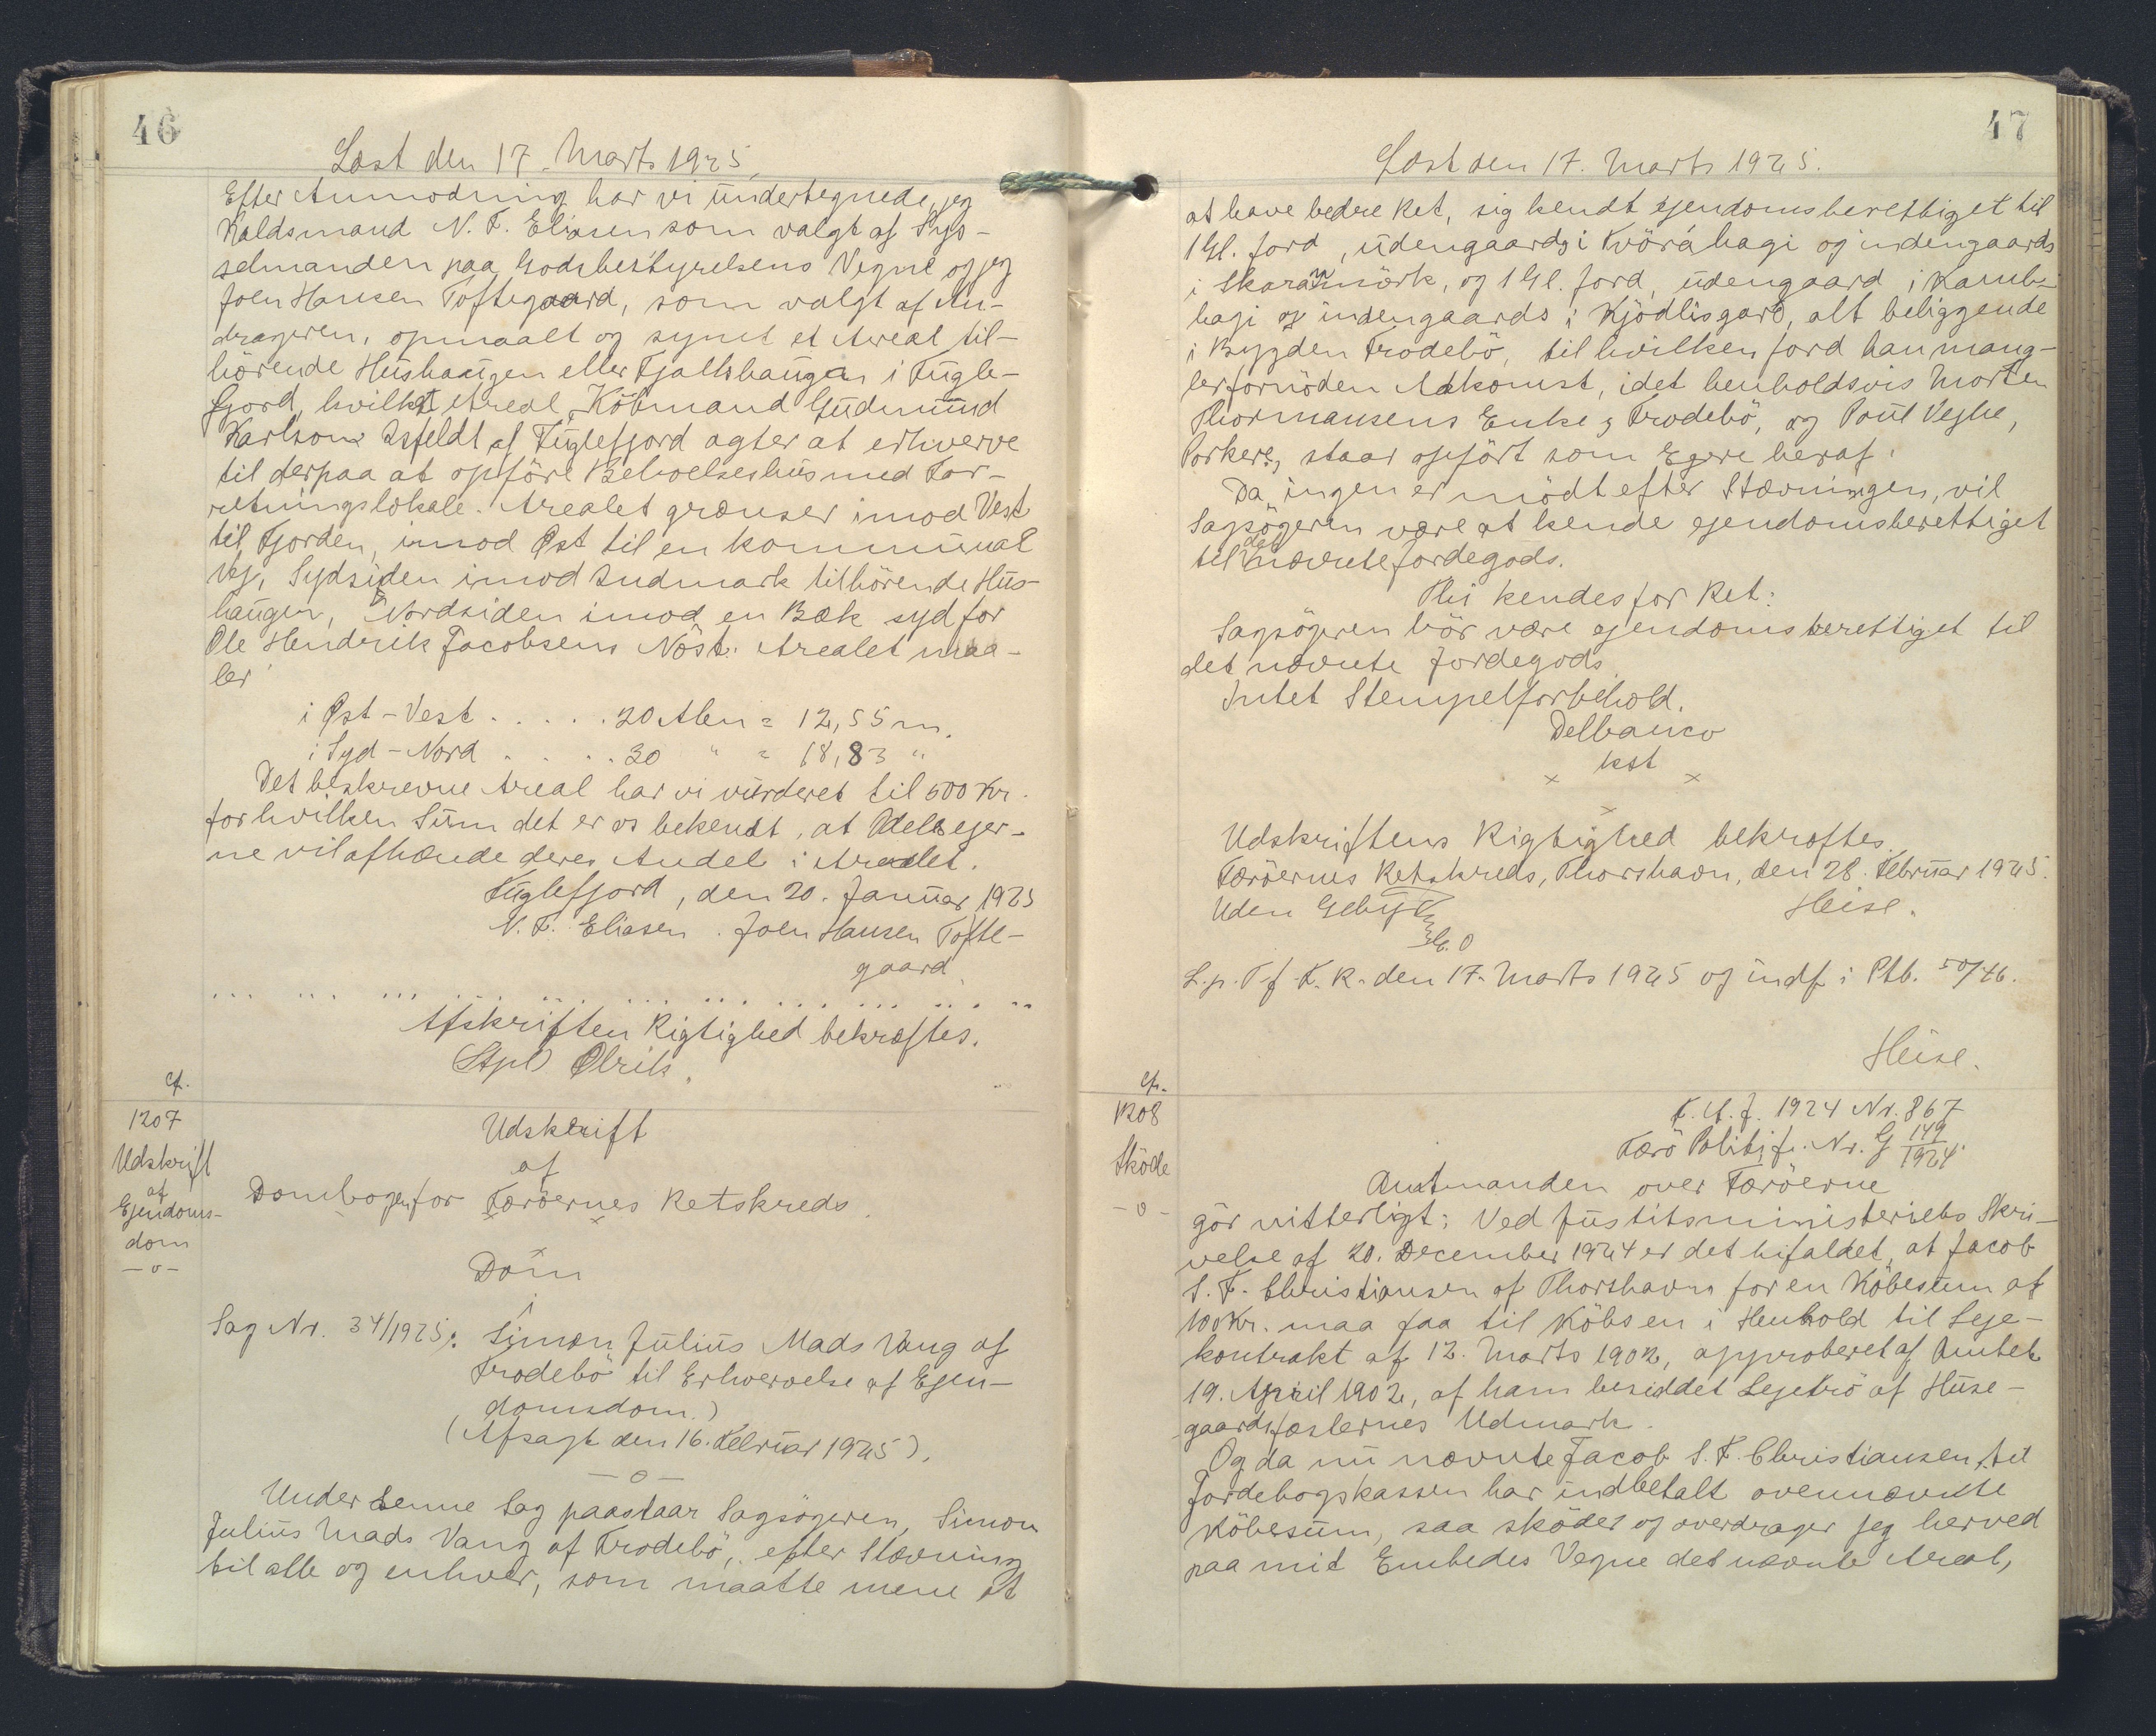 46
Læst den 17. Marts 1925.
Efter Anmodning har vi undertegnede, jeg
Kaldsmand N. F. Eliasen som valgt af Sys-
selmanden paa Godsbestyrelsens Vegne og jeg
Joen Hansen Toftegaard, som valgt af An-
drageren, opmaalt og synet et Areal til-
hörende Húshaúgen eller Fjallshaúgen i Fúgle-
fjord, hvilket Areal Köbmand Gúdmúnd
Karlson Isfeldt af Fúglefjord agter at erhverve
til derpaa at opföre Beboelseshús med For-
retningslokale. Arealet grænser imod Vest
til Fjorden, imod Øst til en kommúnal
Vej, Sydsiden imod Indmark tilhörende Hús-
haugen, Nordsiden imod en Bæk syd for
Ole Hendrik Jacobsens Nöst. Arealet maa-
ler
i Øst-Vest . . . . . 20 Alen = 12,55 m.
i Syd-Nord . . . . . 30 " = 18,83 "
Det beskrevne Areal har vi vúrderet til 600 Kr.
for hvilken Súm det er os bekendt, at Odelsejer-
ne vil afhænde deres Andel i Arealet.
Fúglefjord, den 20. Janúar 1925
N. F. Eliasen. Joen Hansen Tofte-
gaard
... ... ... ... ... ... ... ... ... ...
Afskriften Rigtighed bekræftes.
Stpl Olrik.
cf.
1207
Udskrift
af
Ejendoms-
dom
-o-
Udskrift
af
Dombogen for Færöernes Retskreds.
x x
x
Dom
i
Sag Nr. 34/1925: Simon Júliús Mads Vang af
Frodebö til Erhvervelse af Ejen-
domsdom.)
(Afsagt den 16. Febrúar 1925).
-o-
Under denne Sag paastaar Sagsögeren, Simon
Júliús Mads Vang af Frodebö, efter Stævning
til alle og enhver, som maatte mene at
47
Læst den 17. Marts 1925.
at have bedre Ret, sig kendt ejendomsberettiget til
1 Gl. Jord, údengaards i Kvöráhagi og indengaards
i Skaranmörk, og 1 Gl. Jord, údengaard i Kamb-
hagi og indengaards i Kjödlisgarð, alt beliggende
i Bygden Frodebö, til hvilken Jord han mang-
ler fornöden Adkomst, idet henholdsvis Morten
Thormansens Enke, Frodebö, og Poúl Vejhe,
Porkere, staar opfört som Ejere heraf.
Da ingen er mödt efter Stævningen, vil
Sagsögeren være at kende ejendomsberettiget
til det nævnte Jordegods.
Thi kendes for Ret:
Sagsögeren bör være ejendomsberettiget til
det nævnte Jordegods.
Intet Stempelforbehold.
Delbanco
kst
x x
x
Udskriftens Rigtighed bekræftes.
Færöernes Retskreds, Thorshavn, den 28. Febrúar 1925.
Uden Gebyr Heise.
L.p. T. f. F. R. den 17. Marts 1925 og indf. i Ptb. 50/46.
Heise.
cfr.
1208
Sköde
-o-
F. A. J. 1924 Nr. 867
Færö Politi J. Nr. G 149/1924.
Amtmanden over Færöerne
gör vitterligt: Ved Jústitsministeriets Skri-
velse af 20. December 1924 er det bifaldet, at Jacob
S. F. Christiansen af Thorshavn for en Köbesúm af
100 Kr. maa faa til Köbs en i Henhold til Leje-
kontrakt af 12. Marts 1902, approberet af Amtet
19. April 1902, af ham besiddet Lejetrö af Húse-
gaardsfæsternes Udmark.
Og da nú nævnte Jacob S. F. Christiansen, til
Jordebogskassen har indbetalt ovennævnte
Köbesúm, saa sköder og overdrager jeg herved
paa mit Embedes Vegne det nævnte Areal,